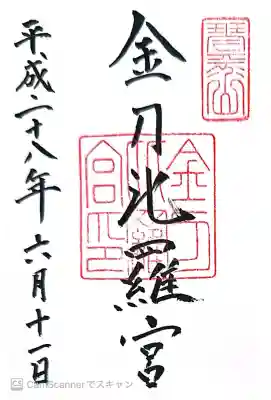 金刀比羅宮
平成二十八年 六月十一日
CamScannerでスキャン